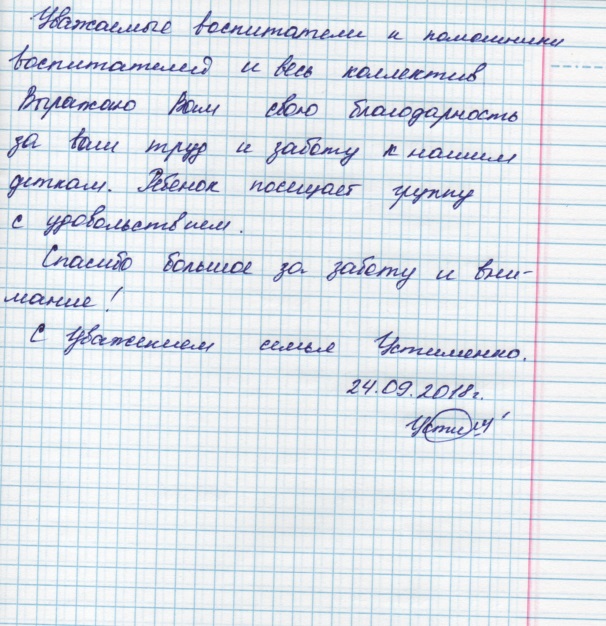 Уважаемые воспитатели и помошники
воспитателей и весь коллектив
Выражаю Вам свою благодарность
за ваш труд и заботу к нашим
деткам. Ребенок посещает группу
с удовольствием.
Спасибо большое за заботу и вни-
мание!
С Уважением семья Устименко.
24.09.2018г.